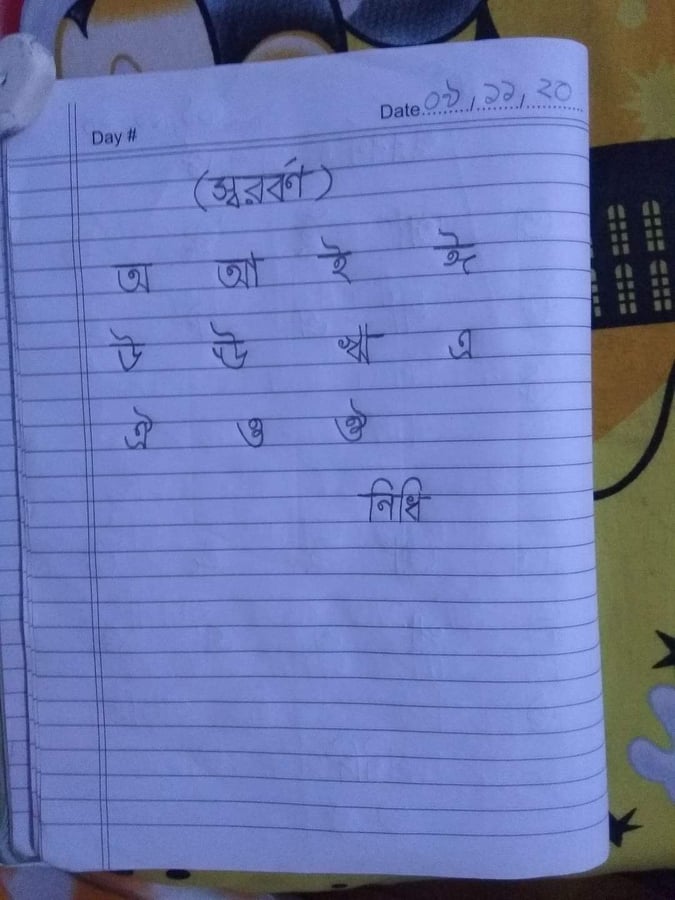 Date ০৯,১১,২০
Day #
(স্বরবর্ণ)
অ আ ই ঈ
উ ঊ ঋ এ
ঐ ও ঔ
নিধি